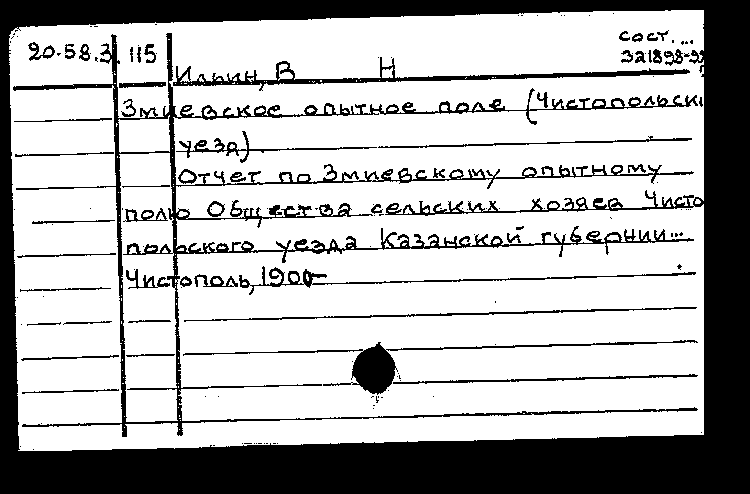 20.58.3. 115 сост. ...
Ильин, В Н За 1898-99
Змиевское опытное поле (Чистопольски
уезд).
Отчет по Змиевскому опытному
полю Общества сельских хозяев Чисто
польского уезда Казанской губернии...
Чистополь, 1900-